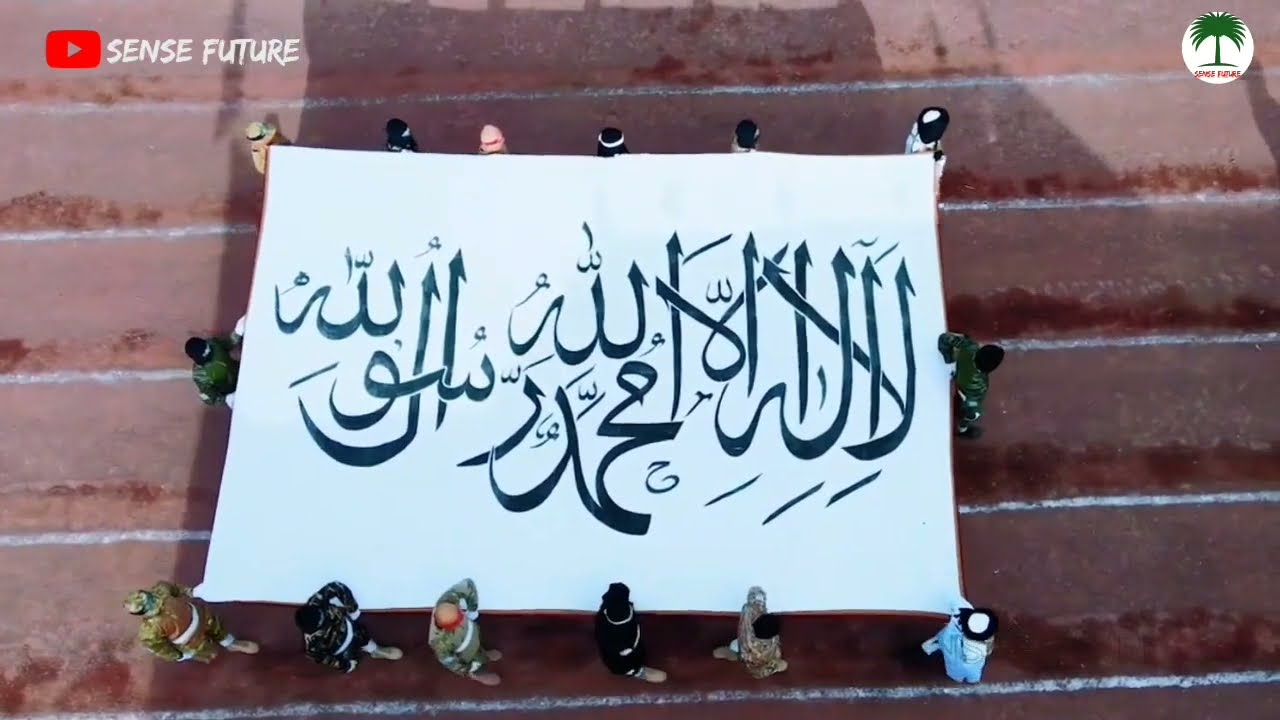 SENSE FUTURE
SENSE FUTURE
لَا إِلٰهَ إِلَّا اللهُ مُحَمَّدٌ رَّسُوْلُ اللّٰهِ